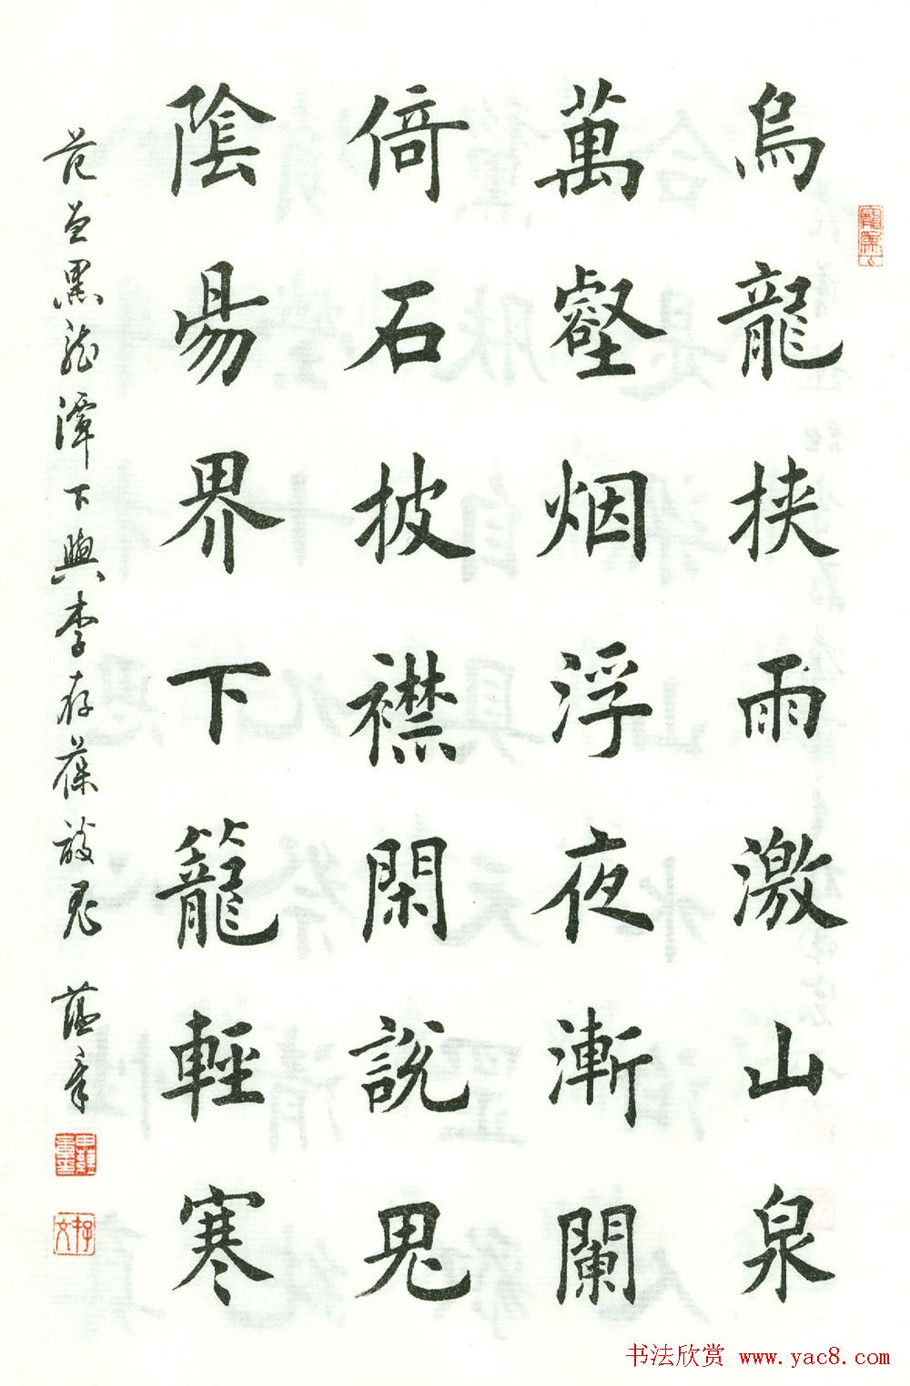 烏龍挾雨激山泉
萬壑烟浮夜漸闌
倚石披襟閑説鬼
陰昜界下籠輕寒
范曾黑龍潭下與李存葆談鬼
蘊章
书法欣赏 www.yac8.com